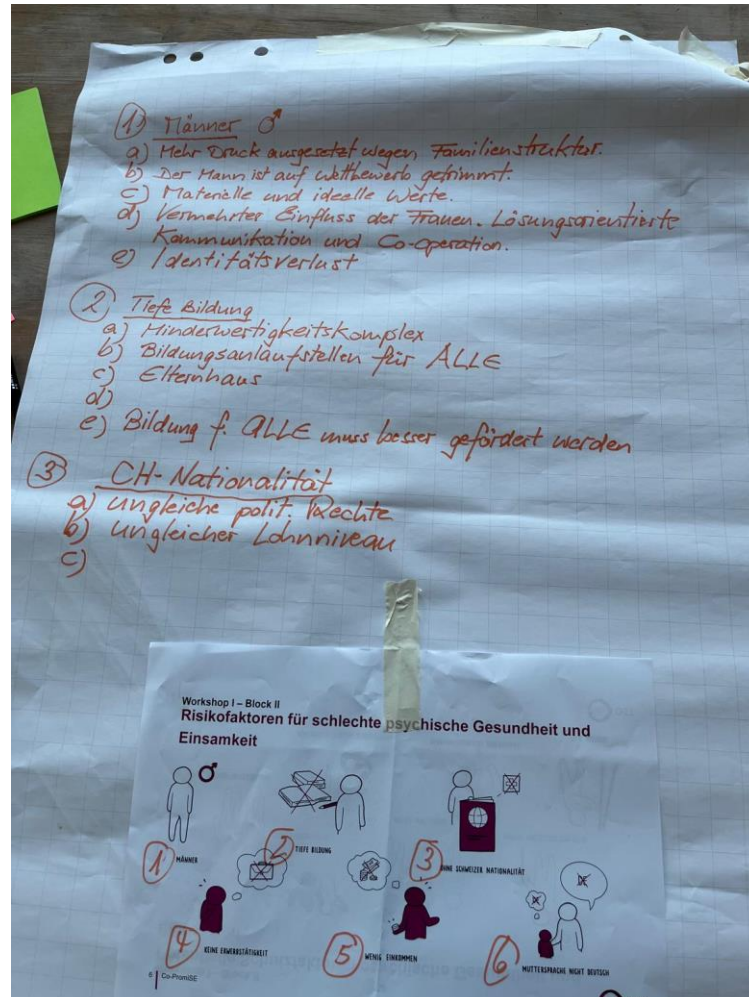 1) Männer ♂
a) Mehr Druck ausgesetzt wegen Familienstruktur.
b) Der Mann ist auf Wettbewerb getrimmt.
c) Materielle und ideelle Werte.
d) Vermehrter Einfluss der Frauen. Lösungsorientierte
Kommunikation und Co-operation.
e) Identitätsverlust
2) Tiefe Bildung
a) Minderwertigkeitskomplex
b) Bildungsanlaufstellen für ALLE
c) Elternhaus
d)
e) Bildung f. ALLE muss besser gefördert werden
3) CH-Nationalität
a) ungleiche polit. Rechte
b) ungleicher Lohnniveau
c)
Workshop I – Block II
Risikofaktoren für schlechte psychische Gesundheit und
Einsamkeit
1 MÄNNER
2 TIEFE BILDUNG
3 OHNE SCHWEIZER NATIONALITÄT
4 KEINE ERWERBSTÄTIGKEIT
5 WENIG EINKOMMEN
6 MUTTERSPRACHE NICHT DEUTSCH
6 | Co-PromiSE